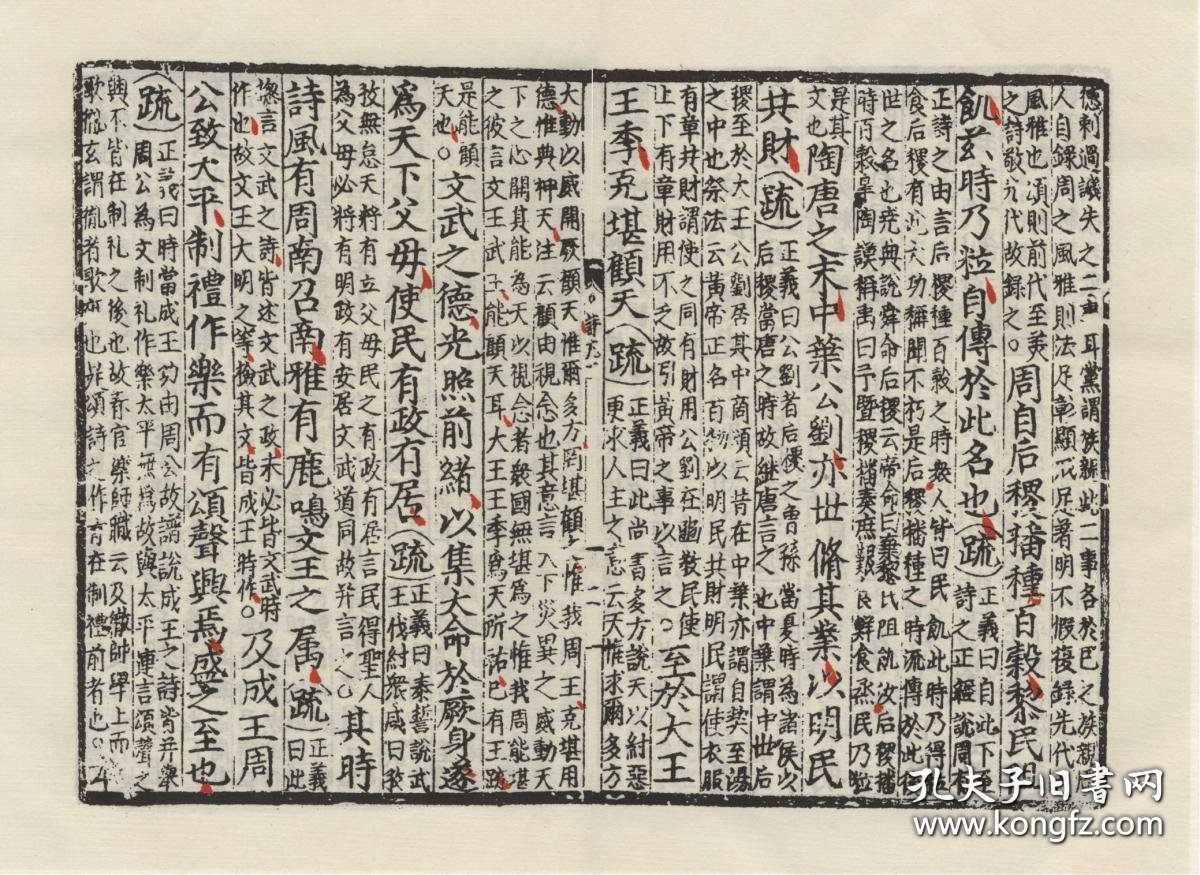 德剌過譏失之二事耳黨謂族親此二事各於己之族親周
人自錄周之風雅則法足彰顯戒足著明不假復錄先代
風雅也頌則前代至美
之詩敬先代故錄之○
周自后稷播種百穀黎民阻
飢茲時乃粒自傳於此名也(疏)
正義曰自此下至
詩之正經說周有
正詩之由言后稷種百穀之時衆人皆曰民飢此時乃得粒
食后稷有此大功稱聞不朽是后稷播種之時流傳於此后
世之名也堯典說舜命后稷云帝命曰棄黎民阻飢汝后稷播
時百穀皋陶謨稱禹曰予暨稷播奏庶艱食鮮食烝民乃粒
是其
文也
陶唐之末中葉公劉亦世脩其業以明民
共財(疏)
正義曰公劉者后稷之曾孫當夏時為諸侯以
后稷當唐之時故継唐言之也中葉謂中世后
稷至於大王公劉居其中商頌云昔在中葉亦謂自契至湯
之中也祭法云黃帝正名百物以明民共財明民謂使衣服
有章共財謂使之同有財用公劉在豳教民使
上下有章財用不乏故引黃帝之事以言之○
至於大王
王季克堪顧天(疏)
正義曰此尚書多方說天以紂惡
更求人主之意云天惟求爾多方
大動以威開厥顧天惟爾多方罔堪顧之惟我周王克堪用
德惟典神天注云顧由視念也其意言天下災異之威動天
下之心開其能為天以視念者衆國無堪為之惟我周能堪
之彼言文王武王能顧天耳大王王季爲天所祐已有王跡
是能顧
天也○
文武之德光照前緒以集大命於厥身遂
爲天下父母使民有政有居(疏)
正義曰泰誓說武
王伐紂衆咸曰孜
孜無怠天將有立父母民之有政有居言民得聖人
為父母必將有明政有安居文武道同故并言之○
其時
詩風有周南召南雅有鹿鳴文王之属(疏)
正義
曰此
揔言文武之詩皆述文武之政未必皆文武時
作也故文王大明之等檢其文皆成王時作○
及成王周
公致大平制禮作樂而有頌聲興焉盛之至也
(疏)
正義曰時當成王功由周公故譜說成王之詩皆并舉
周公為文制礼作樂太平無爲故與太平連言頌聲之
興不皆在制礼之後也故春官樂師職云及徹帥學士而
歌徹玄謂徹者歌雍也是頌詩之作有在制禮前者也○
孔夫子旧书网
www.kongfz.com